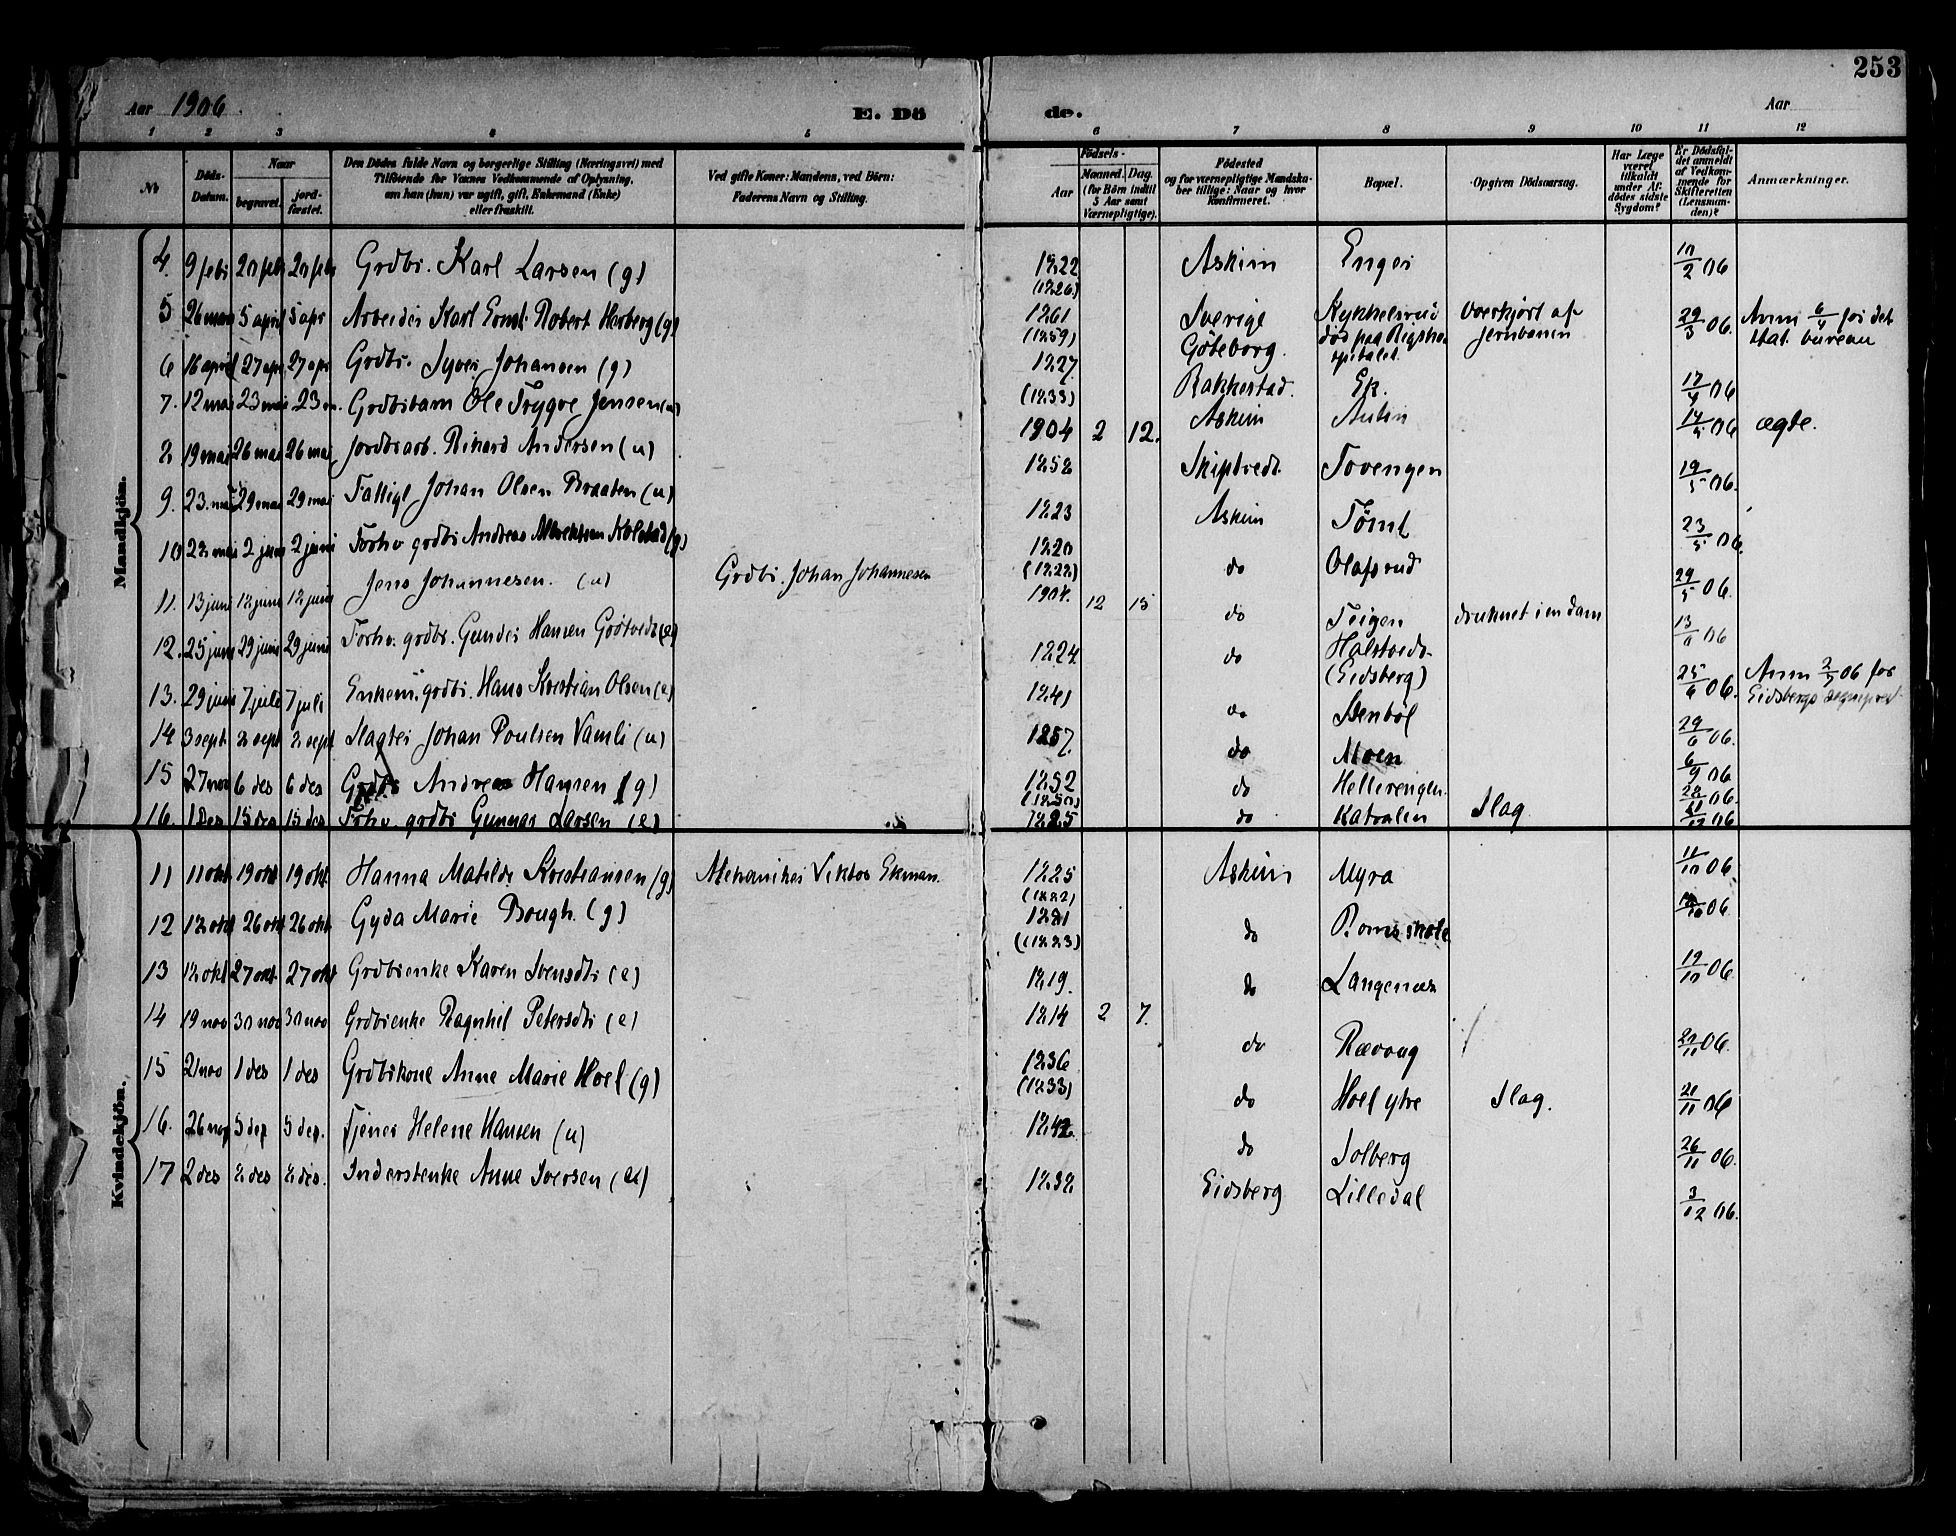 253
Aar 1906
E. Dö de.
Aar
1 2 3 4 5 6 7 8 9 10 11 12
No
Döds-Datum.
Naar
begravet.
jord-fæstet.
Den Dödes fulde Navn og borgerlige Stilling (Næringsvei) med
Tilföiende for Voxnes Vedkommende af Oplysning,
om han (hun) var ugift, gift, Enkemand (Enke)
eller fraskilt.
Ved gifte Koner: Mandens, ved Börn:
Faderens Navn og Stilling.
Födsels-
Aar
Maaned. Dag.
(for Börn indtil
5 Aar samt
Værnepligtige).
Födested
og for værnepligtige Mandska-
ber tillige: Naar og hvor
Konfirmeret.
Bopæl.
Opgiven Dödsaarsag.
Har Læge
været
tilkaldt
under Af-
dödes sidste
Sygdom?
Er Dödsfal-
det anmeldt
af Vedkom-
mende for
Skifteretten
(Lensman-
den)?
Anmærkninger.
Mandkjön.
4. 9 febr 20 feb 20 feb Grdbr. Karl Larsen (g) 1822 (1826) Askim Enger 10/2 06
5 26 mars 5 april 5 apr Arbeider Karl Ernst Robert Harberg (g) 1861 (1859) Sverige Göteborg. Kykkelsrud død paa Rigsho-spitalet. Overkjørt af jernbanen 29/3 06. Anm 6/4 for det stat. bureau
6 16 april 27 apr 27 apr Grdbr. Syver Johansen (g) 1827. (1833) Rakkestad. Ek. 17/4 06
7. 12 mai 23 mai 23 m. Grdbsbarn Ole Trygve Jensen (u) 1904 2 12. Askim 14/5 06 ægte.
8 19 mai 26 mai 26 mai Jordbrarb. Rikard Andersen (u) 1858 Skiptvedt. Tovengen 19/5 06.
9. 23. mai 29 mai 29 mai Fattigl Johan Olsen Braaten (u) 1823 Askim Tømt 23/5 06.
10 28 mai 2 juni 2 juni Forhv grdbr Andreas Kolstad (g) 1820 (1822) do Olafsrud 29/5 06.
11. 13 juni 18 juni 18 juni Jens Johannesen. (u) Grdbr. Johan Johannesen 1904. 12 15 do Teigen druknet i en dam 13/6 06
12. 25 juni 29 juni 29 juni Forhv. grdbr. Gunder Hansen Grøtvedt (e) 1824 do Holstvedt (Eidsberg) 25/6 06. Anm 2/7 06 for Eidsbergs sogneprest
13. 29 juni 7 juli 7 juli Enkem. grdbr. Hans Kristian Olsen (e) 1841 do Stenbøl 29/6 06.
14 3 sept. 8 sept 8 sept Slagter Johan Poulsen Vamli (u) 1857. do Moen 6/9 06
15 27 nov 6 des 6 des Grdbr Andreas Hansen (g) 1852 (1850) do Hellerengen 28/11 06.
16. 15 des 15 des Forhv. grdbr Gunnar Larsen (e) 1825 do Katralen Slag 12 06
Kvindekjön.
11 11 okt 19 okt 19 okt Hanna Matilde Kristiansen (g) Mekaniker Viktor Ekman. 1885 (1882) Askim Myra 11/10 06.
12 18 okt 26 okt 26 okt Gyda Marie Bough. (g) 1881 (1883) do Roms skole 10 06.
13 18 okt 27 okt 27 okt Grdbrenke Karen Svensdtr (e) 1819. do Langenæs 19/10 06.
14 19 nov 30 nov 30 nov Grdbrenke Ragnhil Petersdtr (e) 1814 2 7. do Rævaug 11 06.
15 21 nov 1 des 1 des Grdbrkone Anne Marie Hoel (g) 1836 (1833) do Hoel ytre Slag. 21/11 06
16. 26 nov 5 des 5 des. Tjener Helene Hansen (u) 1842. do Solberg 26/11 06.
17 2 des 8 des 8 des. Inderstenke Anne Iversen (e) 1838 Eidsberg Lilledal 3/12 06.